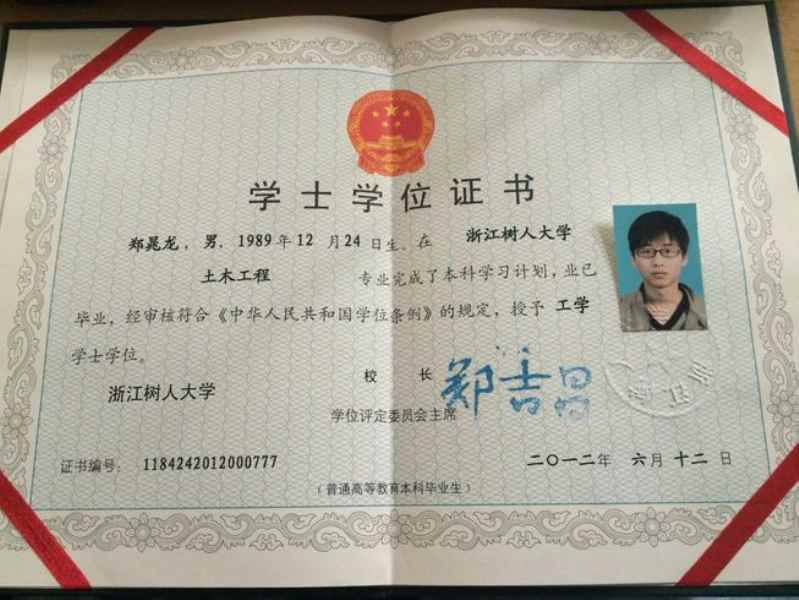 学士学位证书
郑晁龙，男，1989年12月24日生。在 浙江树人大学
土木工程 专业完成了本科学习计划，业已
毕业，经审核符合《中华人民共和国学位条例》的规定，授予 工学
学士学位。
浙江树人大学
校 长 郑吉昌
学位评定委员会主席
证书编号：1184242012000777
二〇一二年 六月 十二日
（普通高等教育本科毕业生）